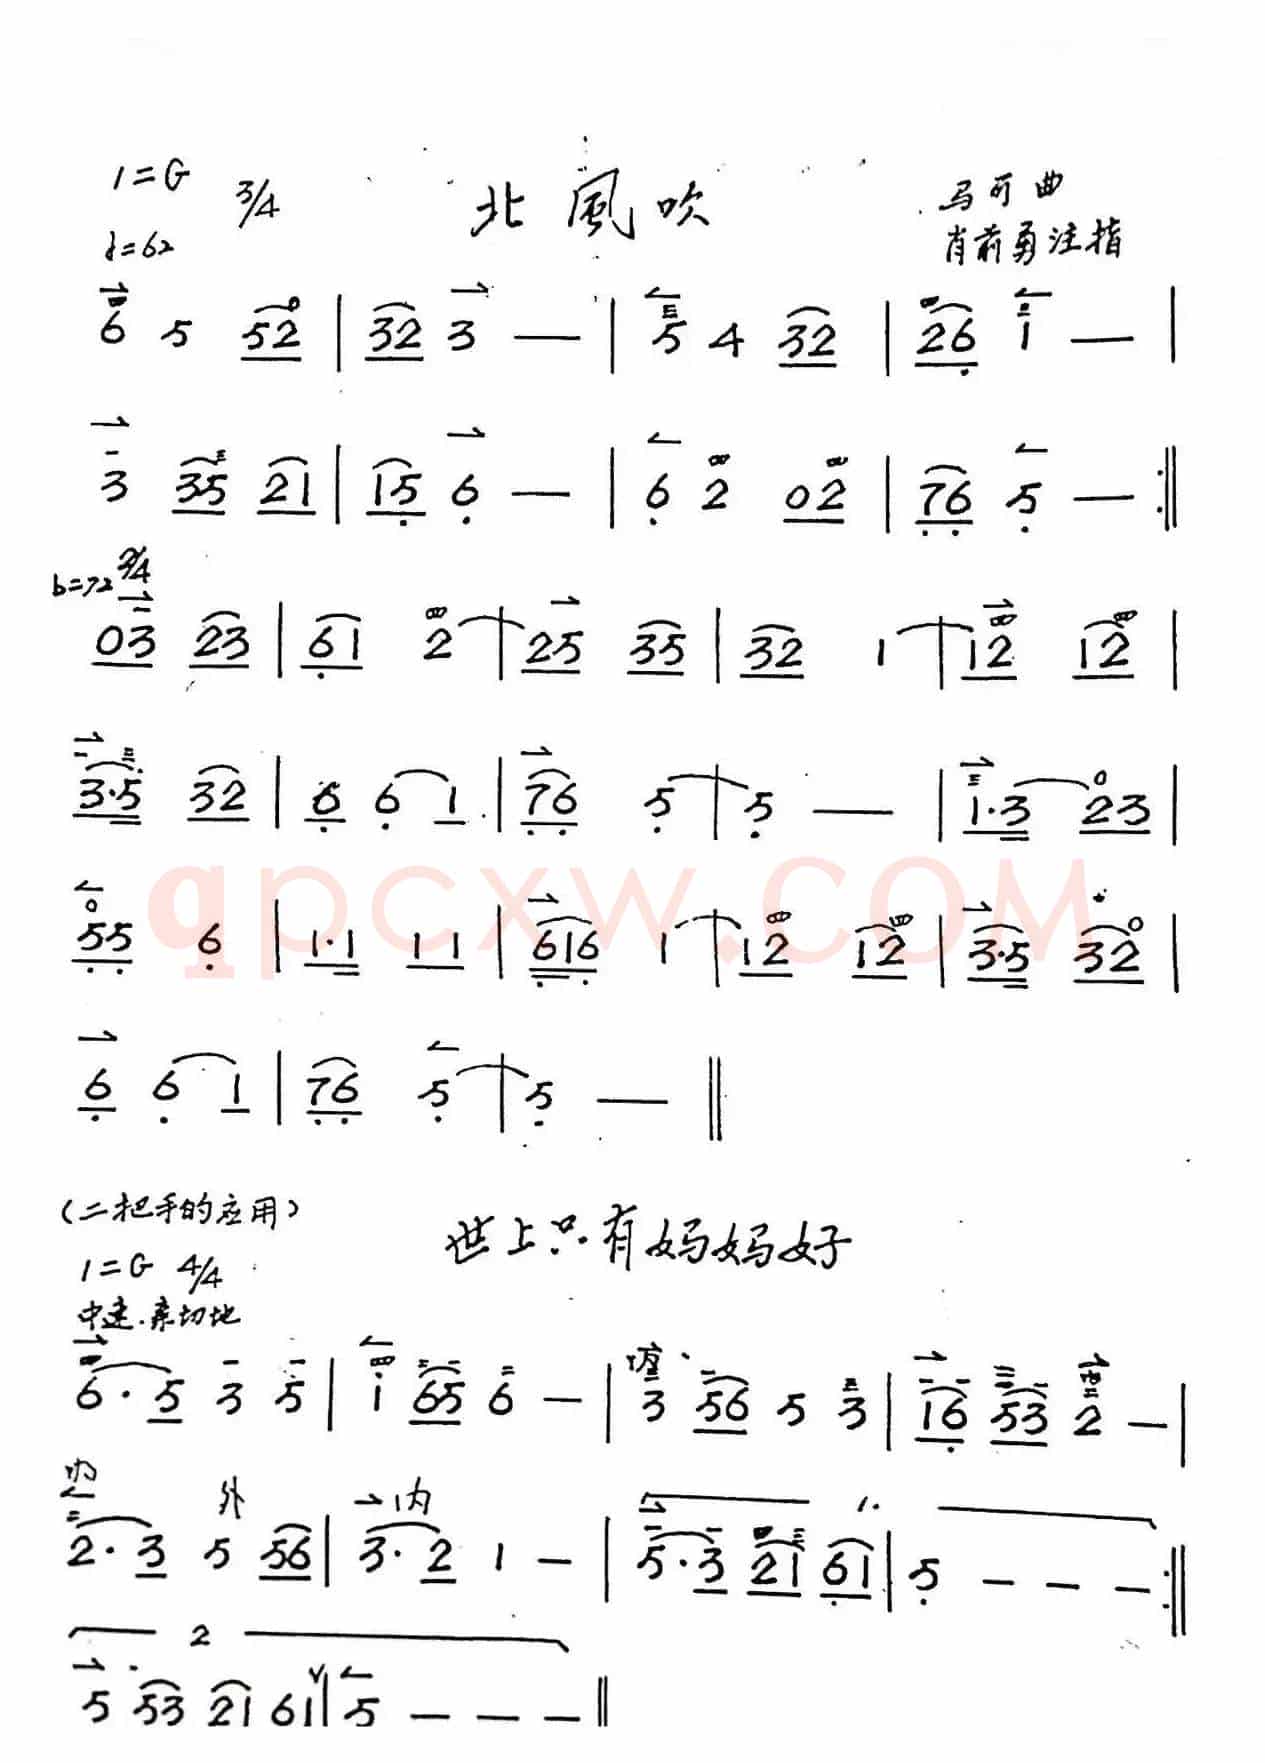 1=G 3/4 北風吹 马可曲
♩=62 肖前勇注指
6 5 52 | 32 3 — | 5 4 32 | 26 1 — |
3 35 21 | 15 6 — | 6 2 02 | 76 5 — :||
=72 2/4
03 23 | 61 2 | 25 35 | 32 1 | 12 12 |
3·5 32 | 6 6 1 | 76 5 | 5 — | 1·3 23 |
55 6 | 1·1 11 | 616 1 | 12 12 | 3·5 32 |
qpcxw.COM
6 6 1 | 76 5 | 5 — ||
(二把手的应用) 世上只有妈妈好
1=G 4/4
中速.亲切地
6·5 3 5 | i 65 6 — | 3 56 5 3 | 16 53 2 —|
内 外 内
2·3 5 56 | 3·2 1 — | 5·3 21 61 | 5 — — — :||
1.
2
5 53 21 61 | 5 — — — ||